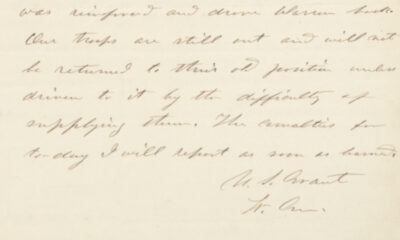 was reinforced and drove Warren back.
Our troops are still out and will not
be returned to their old position unless
driven to it by the difficulty of
supplying them. The casualties for
to-day I will report as soon as learned.
U. S. Grant
Lt. Gen.